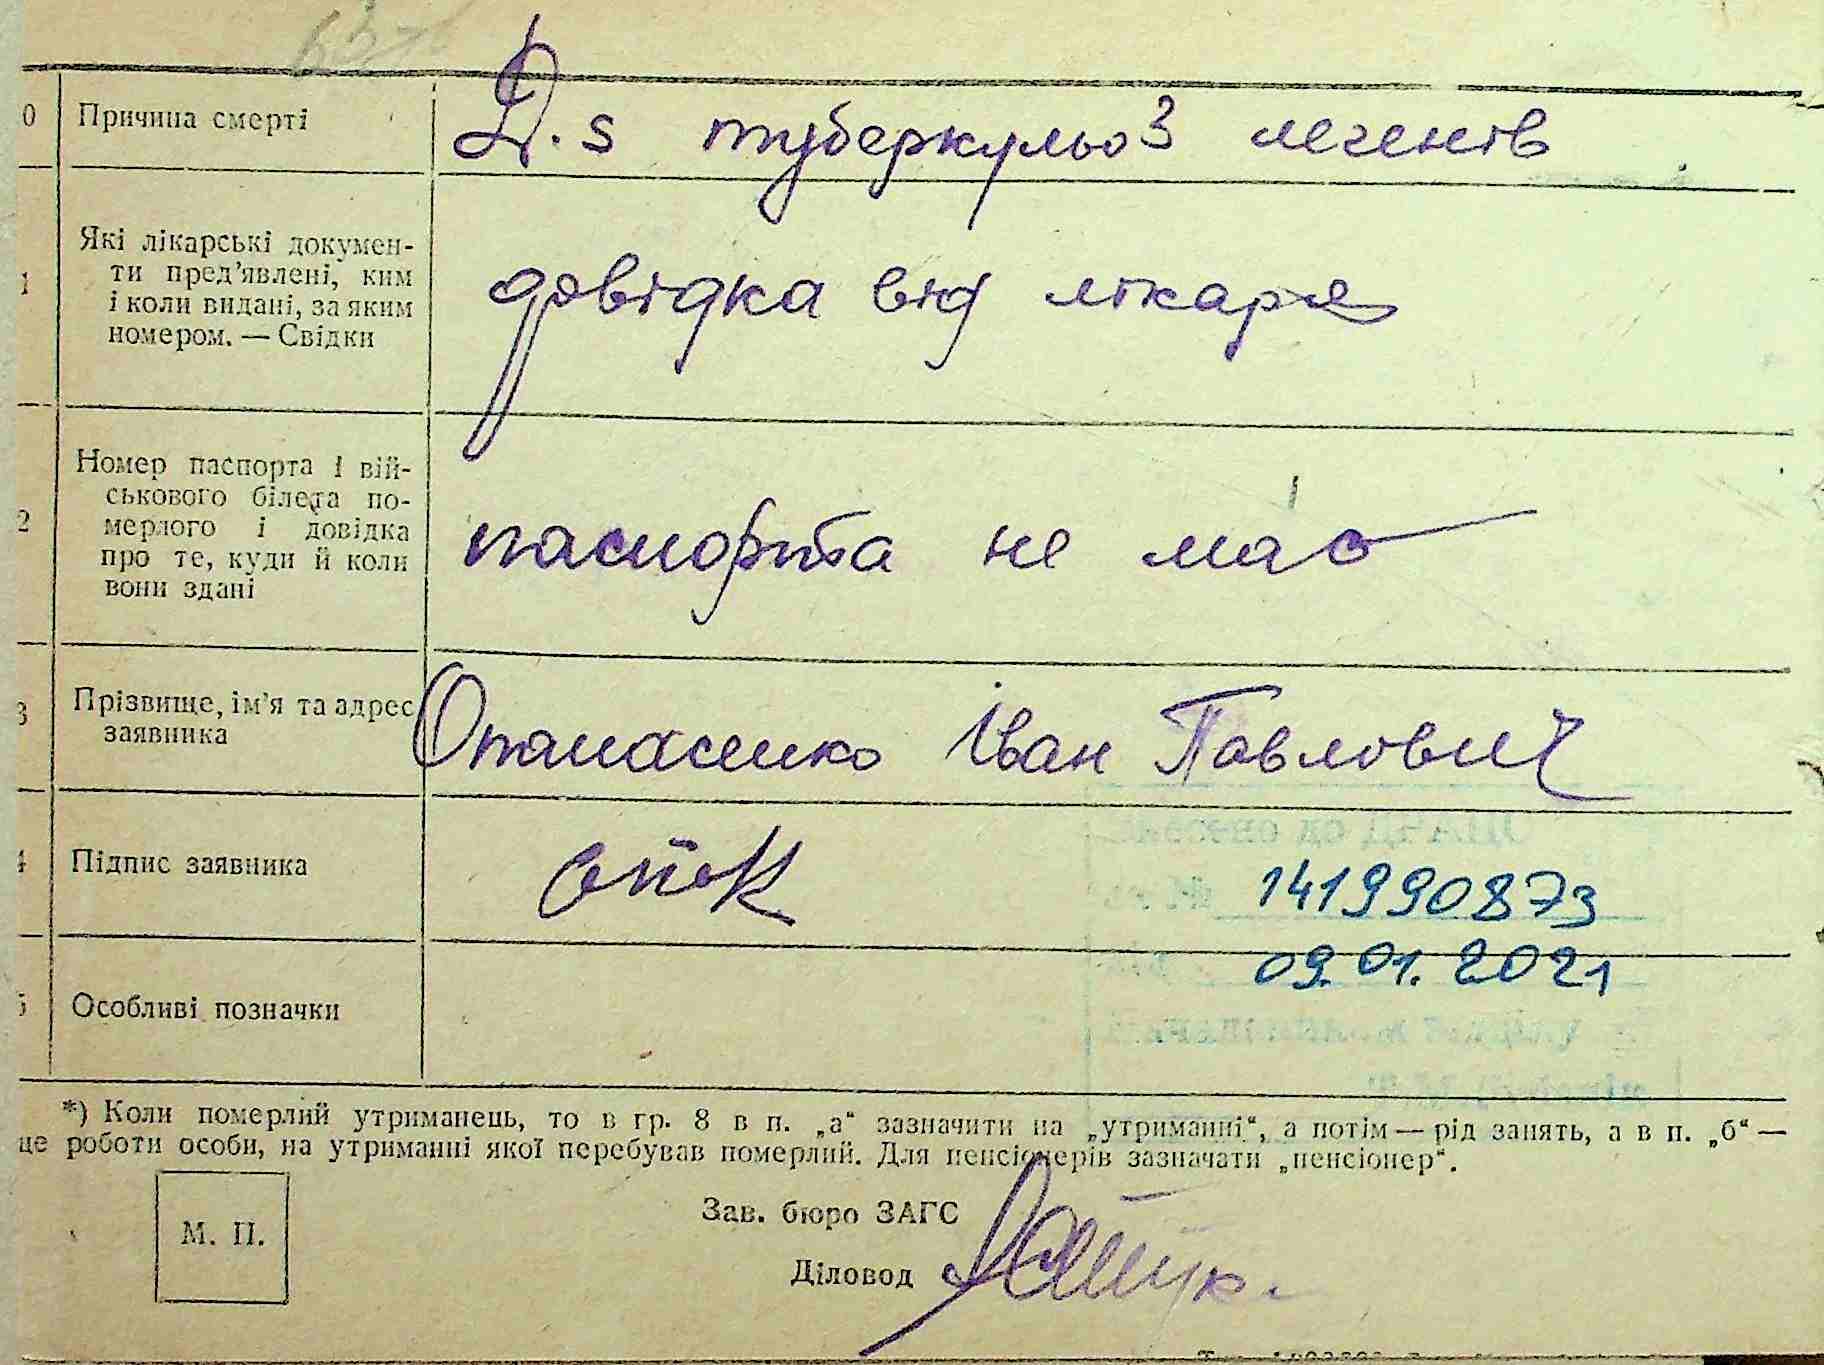 0 Причина смерті D.s туберкульоз легенів
1 Які лікарські докумен-
ти пред’явлені, ким
і коли видані, за яким
номером. — Свідки
довідка від лікаря
2 Номер паспорта і вій-
ськового білета по-
мерлого і довідка
про те, куди й коли
вони здані
паспорта не має
3 Прізвище, ім’я та адрес
заявника
Опанасенко Іван Павлович
4 Підпис заявника
141990873
09.01.2021
5 Особливі позначки
*) Коли померлий утриманець, то в гр. 8 в п. „а“ зазначити на „утриманні“, а потім — рід занять, а в п. „б“ —
це роботи особи, на утриманні якої перебував померлий. Для пенсіонерів зазначати „пенсіонер“.
М. П.
Зав. бюро ЗАГС
Діловод